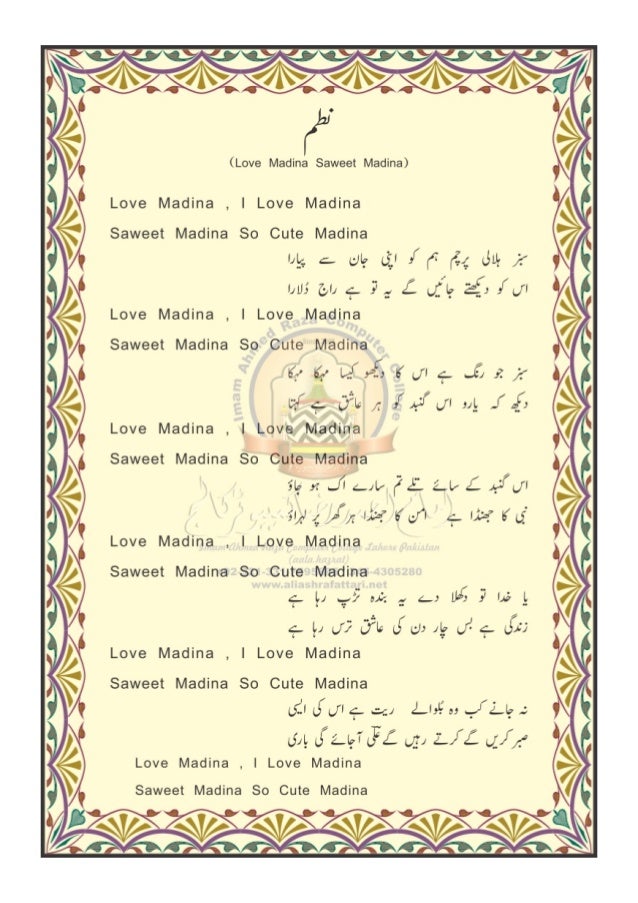 نظم
(Love Madina Saweet Madina)
Love Madina , I Love Madina
Saweet Madina So Cute Madina
سبز ہلالی پرچم ہم کو اپنی جان سے پیارا
اس کو دیکھتے جائیں گے یہ تو ہے راج دُلارا
Love Madina , I Love Madina
Saweet Madina So Cute Madina
سبز جو رنگ ہے اس کا دیکھو کیسا مہکا مہکا
دیکھ کہ یارو اس گنبد کو ہر عاشق ہے کہتا
Love Madina , I Love Madina
Saweet Madina So Cute Madina
اس گنبد کے سائے تلے تم سارے اک ہو جاؤ
نبی کا جھنڈا ہے امن کا جھنڈا ہر گھر پر لہراؤ
Love Madina , I Love Madina
Saweet Madina So Cute Madina
یا خدا تو دکھلا دے یہ بندہ تڑپ رہا ہے
زندگی ہے بس چار دن کی عاشق ترس رہا ہے
Love Madina , I Love Madina
Saweet Madina So Cute Madina
نہ جانے کب وہ بُلوالے ریت ہے اس کی ایسی
صبر کریں گے کرتے رہیں گے علی آجائے گی باری
Love Madina , I Love Madina
Saweet Madina So Cute Madina
Imam Ahmed Raza Computer College
Imam Ahmed Raza Computer College Lahore Pakistan
(aala.hazrat)
4305280
www.aliashrafattari.net